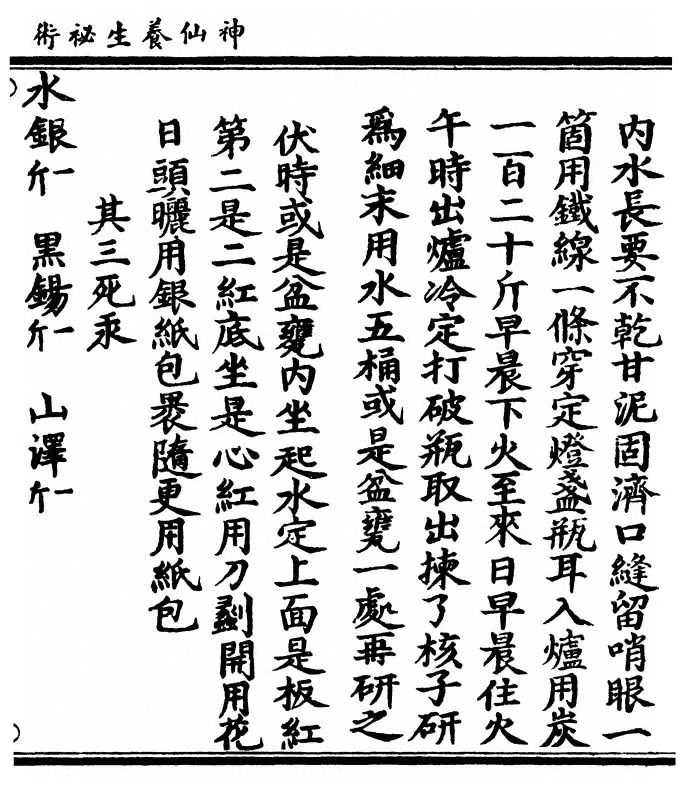 神仙養生祕術
內水長要不乾甘泥固濟口縫留哨眼一
箇用鐵線一條穿定燈盞瓶耳入爐用炭
一百二十斤早晨下火至來日早晨住火
午時出爐冷定打破瓶取出揀了核子研
爲細末用水五桶或是盆甕一處再研之
伏時或是盆甕內坐起水定上面是板紅
第二是二紅底坐是心紅用刀剗開用花
日頭曬用銀紙包褁隨更用紙包
其三死汞
水銀一斤 黑錫一斤 山澤一斤